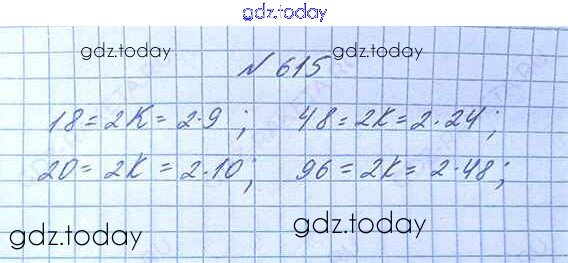 gdz.today
gdz.today № 615 gdz.today
18 = 2K = 2·9 ; 48 = 2K = 2·24 ;
20 = 2K = 2·10 ; 96 = 2K = 2·48 ;
gdz.today gdz.today